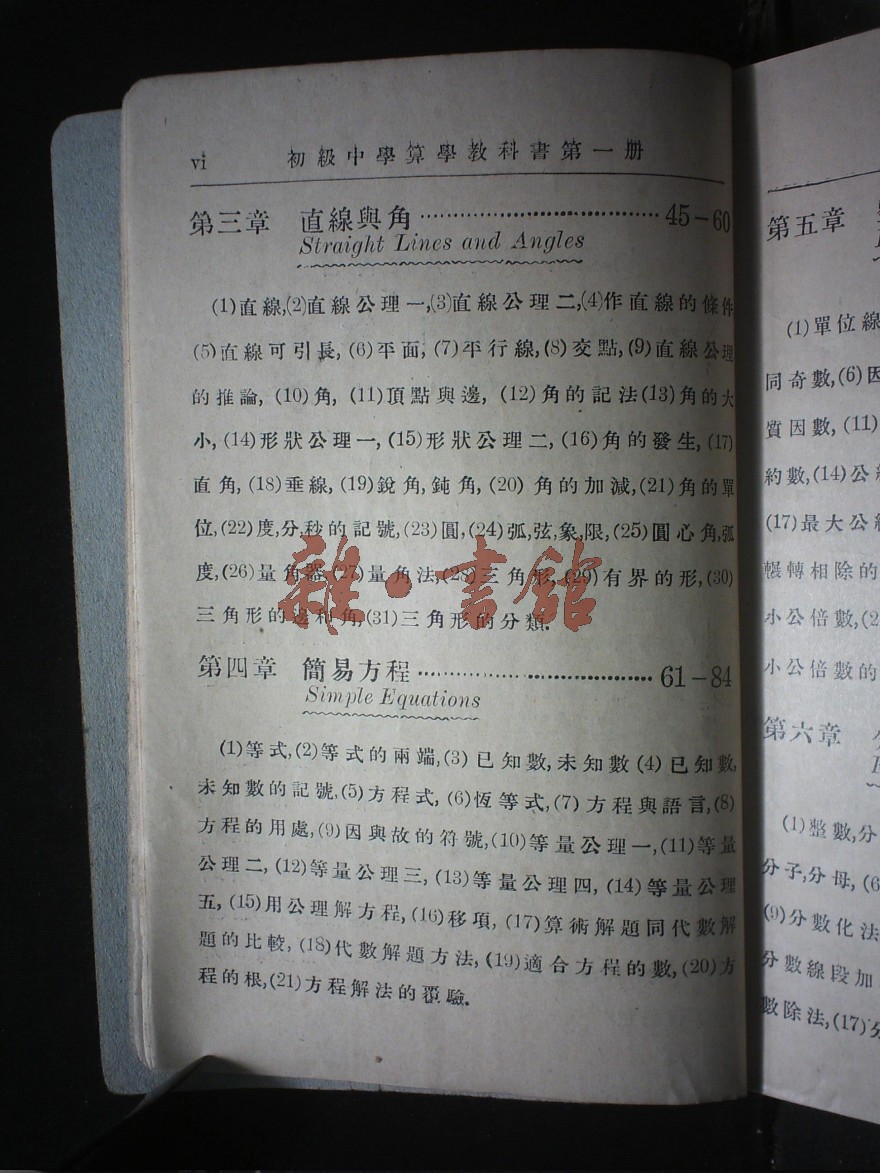 vi 初級中學算學教科書第一册
第三章 直線與角 45–60
Straight Lines and Angles
(1)直線,(2)直線公理一,(3)直線公理二,(4)作直線的條件
(5)直線可引長, (6)平面, (7)平行線,(8)交點,(9)直線公理
的推論, (10)角, (11)頂點與邊, (12)角的記法(13)角的大
小, (14)形狀公理一, (15)形狀公理二, (16)角的發生, (17)
直角, (18)垂線, (19)銳角,鈍角, (20) 角的加減,(21)角的單
位,(22)度,分,秒的記號,(23)圓,(24)弧,弦,象限,(25)圓心角,弧
度,(26)量角器,(27)量角法,(28)三角形,(29)有界的形,(30)
三角形的邊和角,(31)三角形的分類.
雜·書館
第四章 簡易方程 61–84
Simple Equations
(1)等式,(2)等式的兩端,(3)已知數,未知數(4)已知數,
未知數的記號,(5)方程式, (6)恆等式,(7)方程與語言,(8)
方程的用處,(9)因與故的符號,(10)等量公理一,(11)等量
公理二, (12)等量公理三, (13)等量公理四, (14)等量公理
五, (15)用公理解方程,(16)移項, (17)算術解題同代數解
題的比較, (18)代數解題方法, (19)適合方程的數,(20)方
程的根,(21)方程解法的覆驗.
第五章
(1)單位線
同奇數,(6)因
質因數, (11)
約數,(14)公
(17)最大公
輾轉相除的
小公倍數,(2
小公倍數的
第六章
(1)整數,分
分子,分母, (6
(9)分數化法
分數線段加
數除法,(17)分